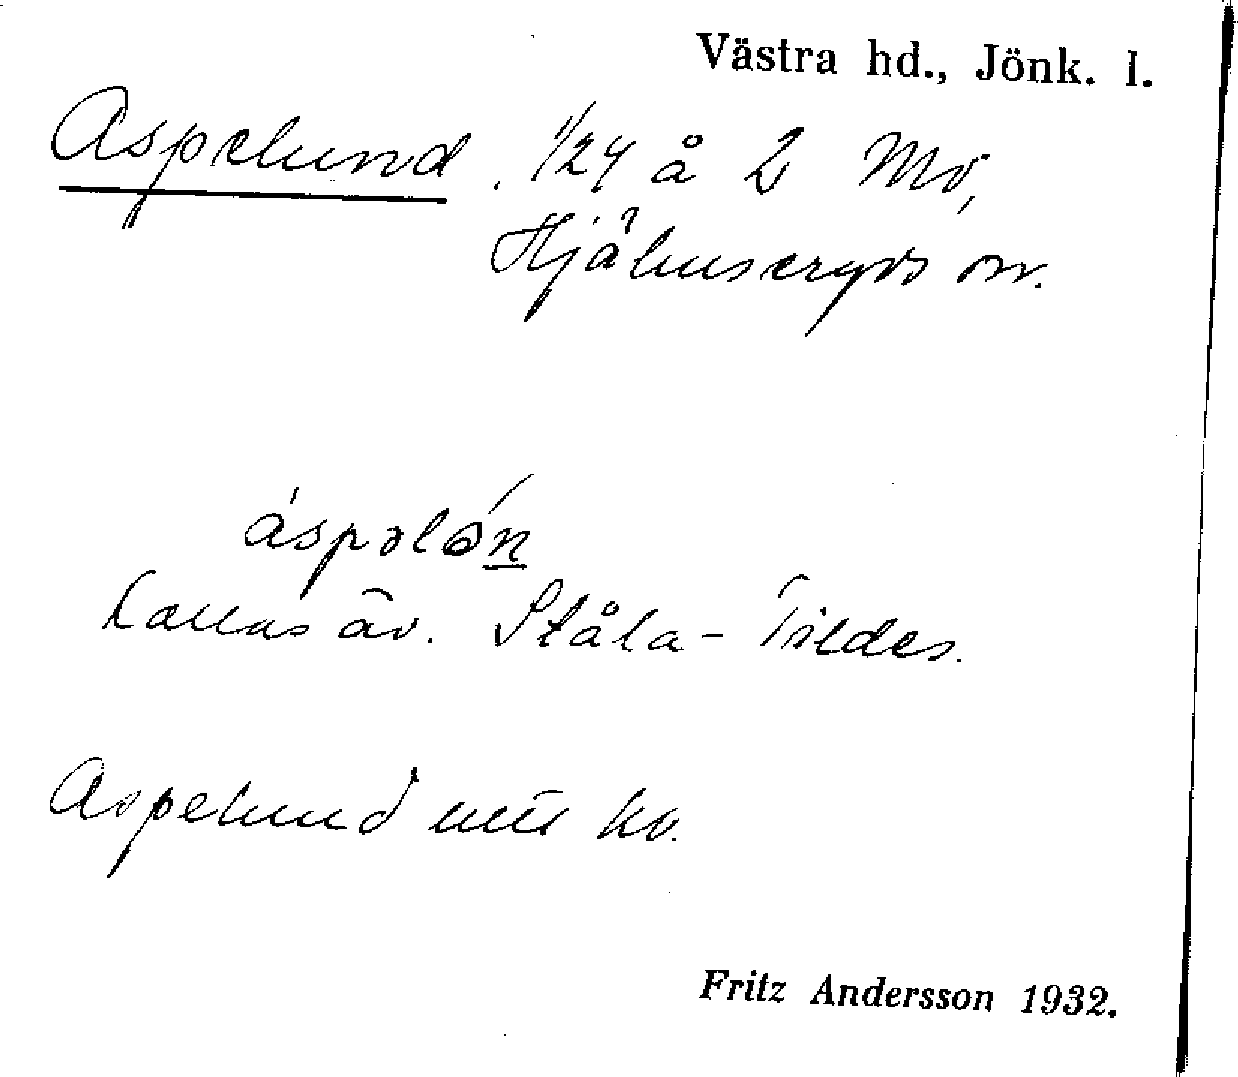 Västra hd., Jönk. l.
Aspelund. 1/24 å 2 Mo,
Hjälmseryds sn.
áspəlón
Kallas äv. Ståla-Tildes.
Aspelund
Fritz Andersson 1932.